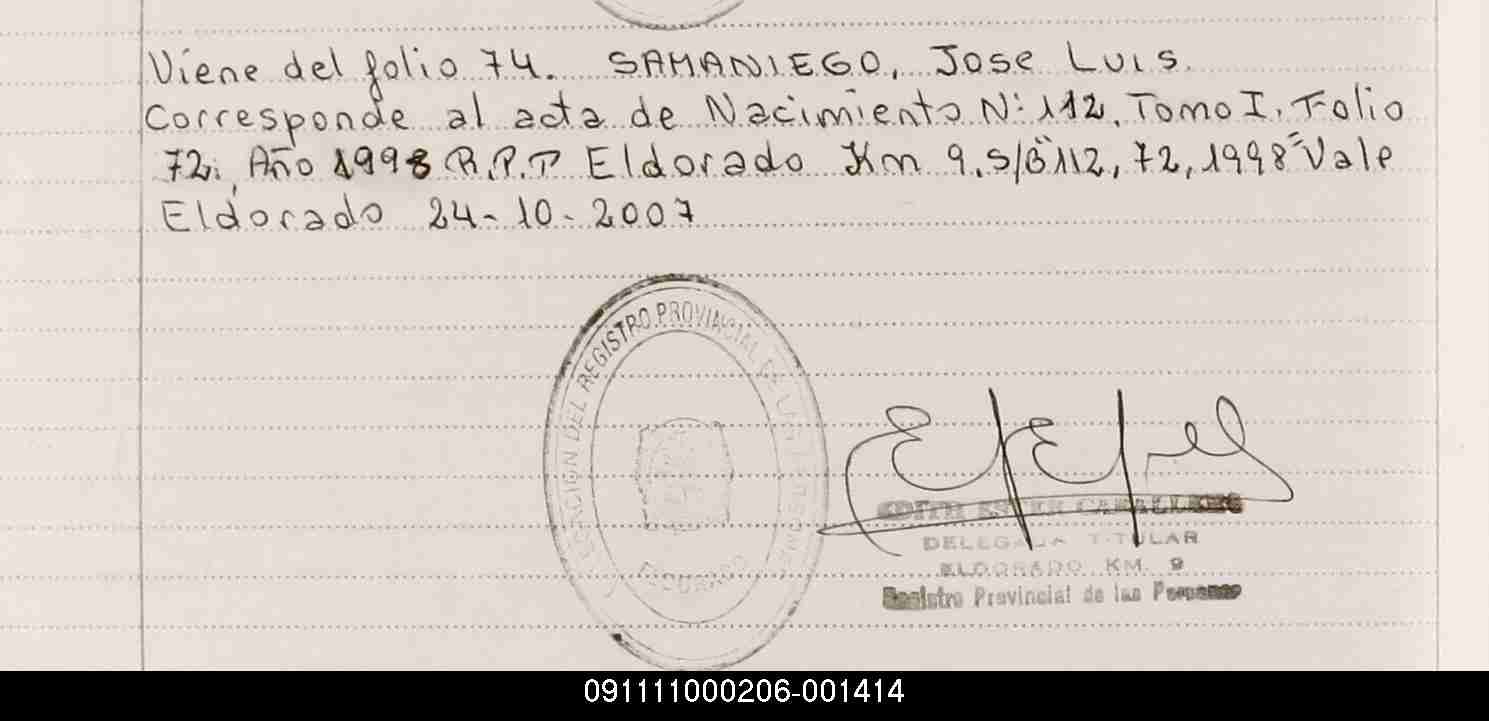 Viene del folio 74. SAMANIEGO, Jose Luis.
Corresponde al acta de Nacimiento N: 112, Tomo I, Folio
72, Año 1998 R.P.P Eldorado Km 9. S/B "112, 72, 1998" Vale
Eldorado 24-10-2007
DEL REGISTRO PROVINCIAL DE LAS PERSONAS
ELDORADO
EDITH ESTER CABALLERO
DELEGADA TITULAR
ELDORADO KM. 9
Registro Provincial de las Personas
091111000206-001414